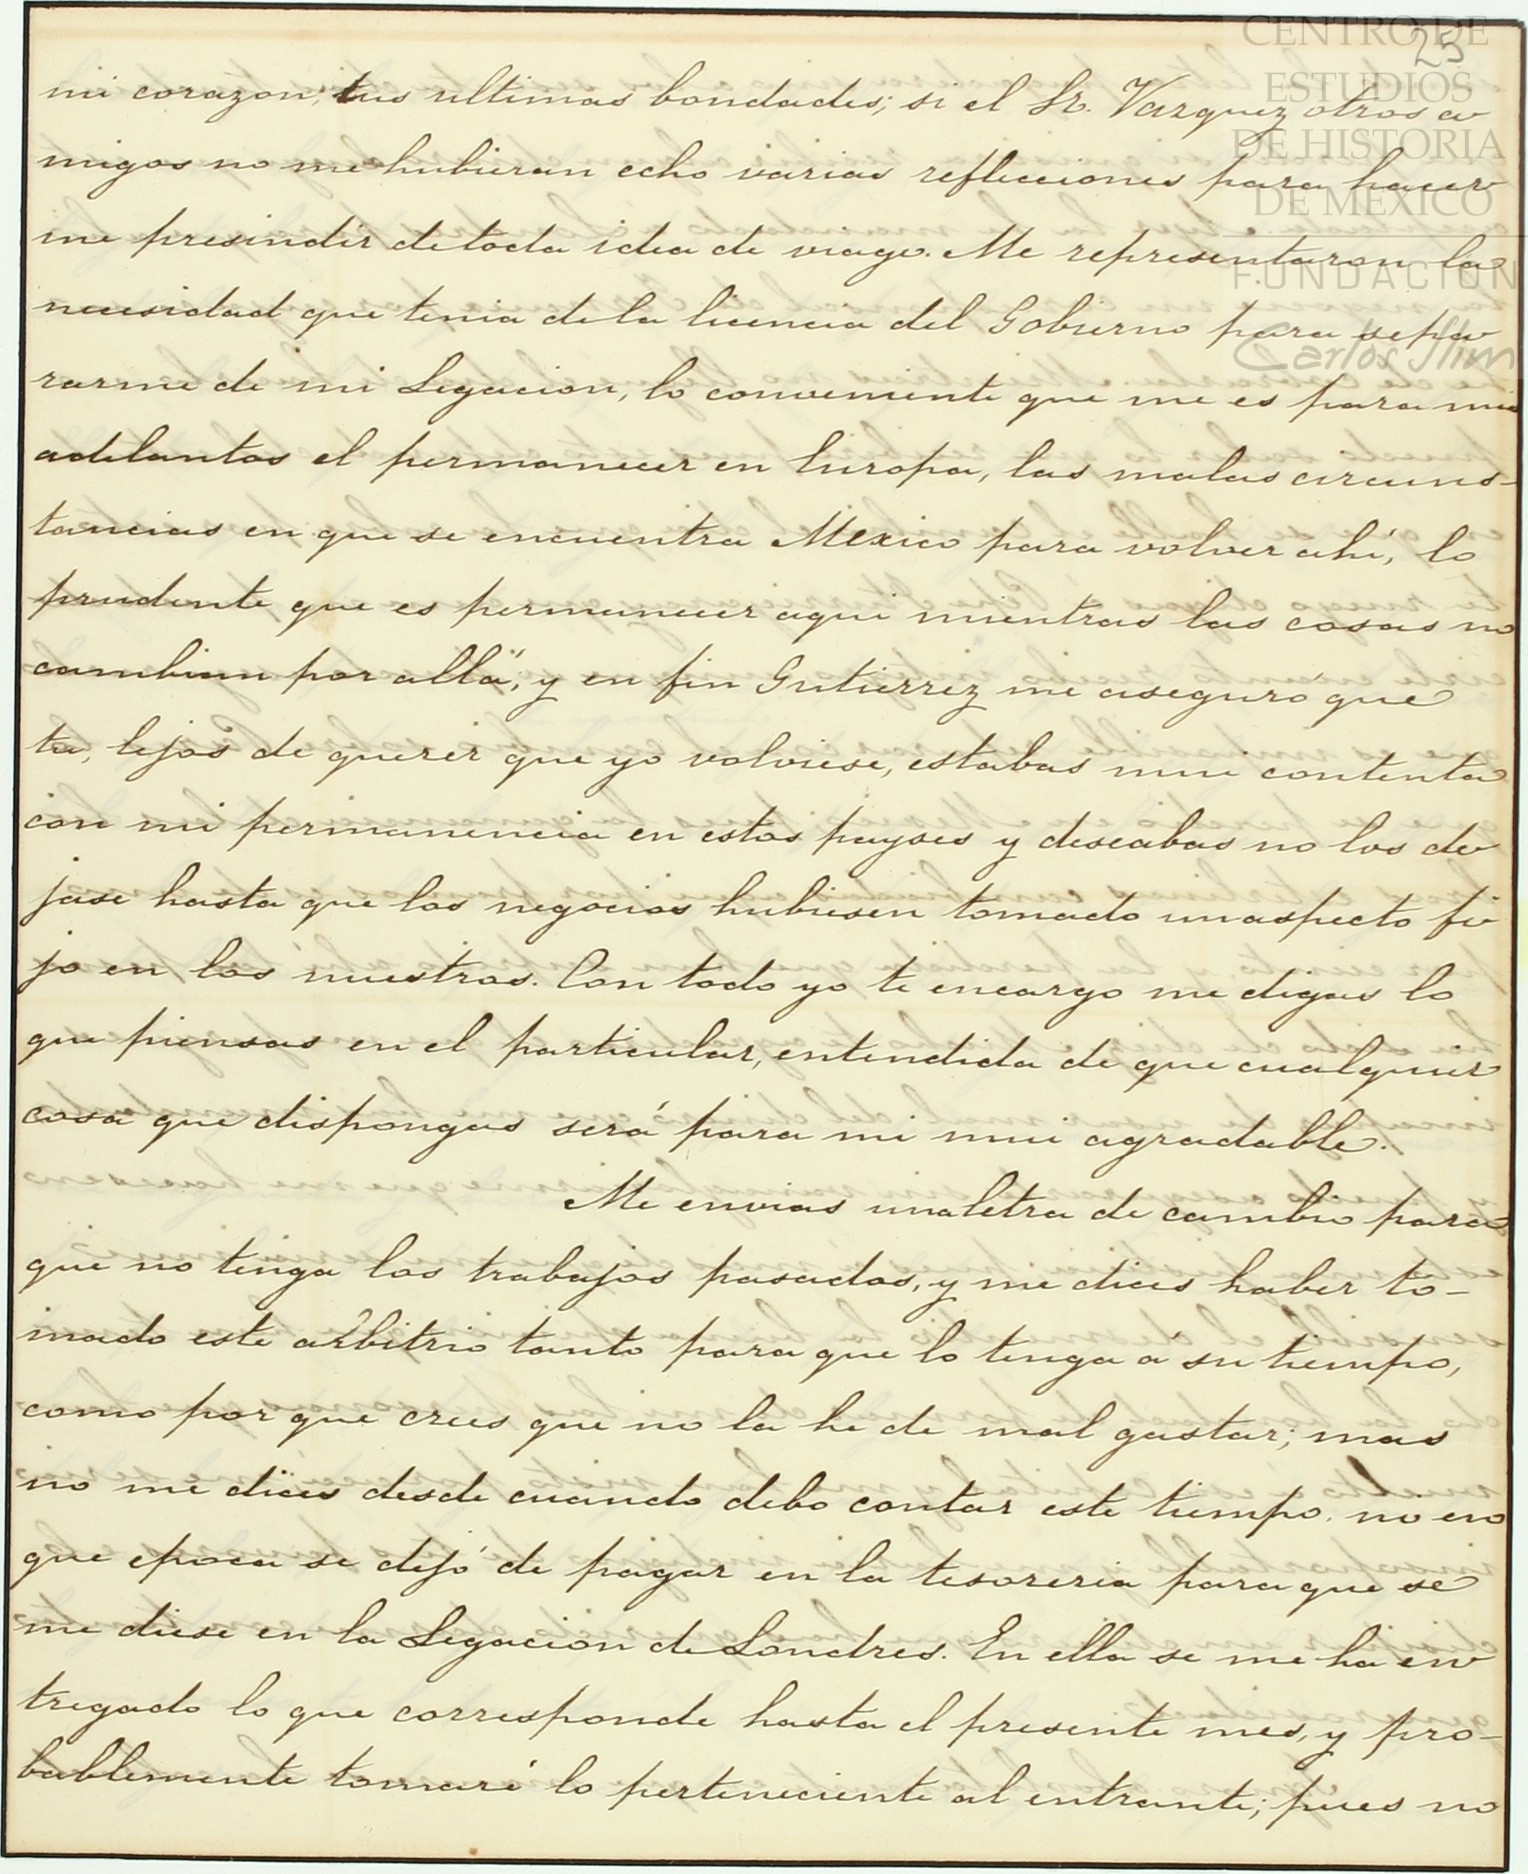 25
CENTRO DE
ESTUDIOS
DE HISTORIA
DE MÉXICO
FUNDACIÓN
Carlos Slim
mi corazon; tus ultimas bondades; si el Sr. Vazquez otros a
migos no me hubieran echo varias reflecciones para hacer
me presindir de toda idea de viage. Me representaron la
necesidad que tenia de la licencia del Gobierno para sepa
rarme de mi Legacion, lo conveniente que me es para mis
adelantos el permanecer en Europa, las malas circuns-
tancias en que se encuentra Mexico para volver ahí, lo
prudente que es permanecer aqui mientras las cosas no
cambian por allá, y en fin Gutierrez me aseguró que
tu, lejos de querer que yo volviese, estabas mui contenta
con mi permanencia en estos payses y deseabas no los de
jase hasta que los negocios hubiesen tomado un aspecto fi
jo en los nuestros. Con todo yo te encargo me digas lo
que piensas en el particular, entendida de que cualquier
cosa que dispongas será para mi mui agradable.
Me envias una letra de cambio para
que no tenga los trabajos pasados, y me dices haber to-
mado este arbitrio tanto para que lo tenga á su tiempo,
como por que crees que no la he de mal gastar; mas
no me dices desde cuando debo contar este tiempo, ni en
que epoca se dejó de pagar en la tesoreria para que se
me diese en la Legacion de Londres. En ella se me ha en
tregado lo que corresponde hasta el presente mes, y pro-
bablemente tomaré lo perteneciente al entrante; pues no